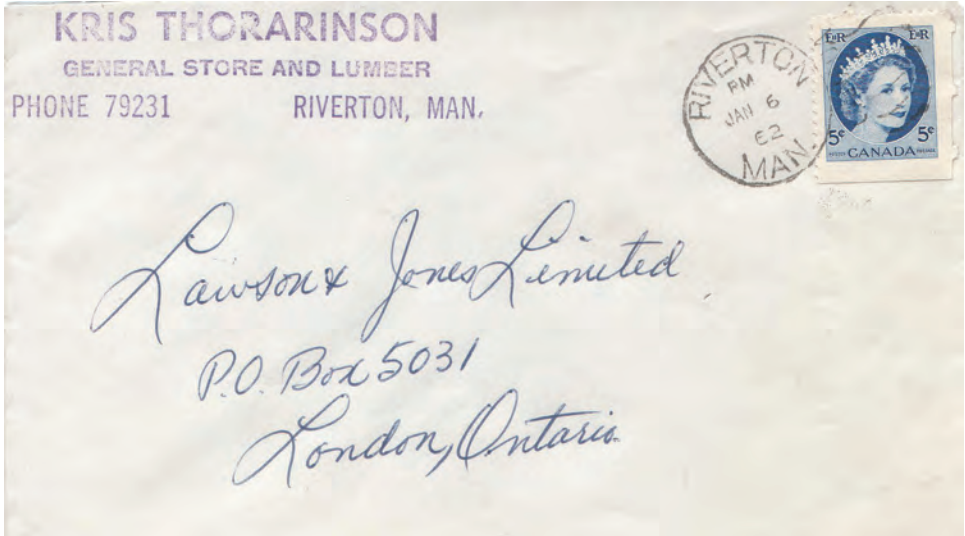 KRIS THORARINSON
GENERAL STORE AND LUMBER
PHONE 79231 RIVERTON, MAN.
RIVERTON
PM
JAN 6
62
MAN.
E R E R
5¢ 5¢
POSTES CANADA POSTAGE
Lawson & Jones Limited
P.O. Box 5031
London, Ontario.